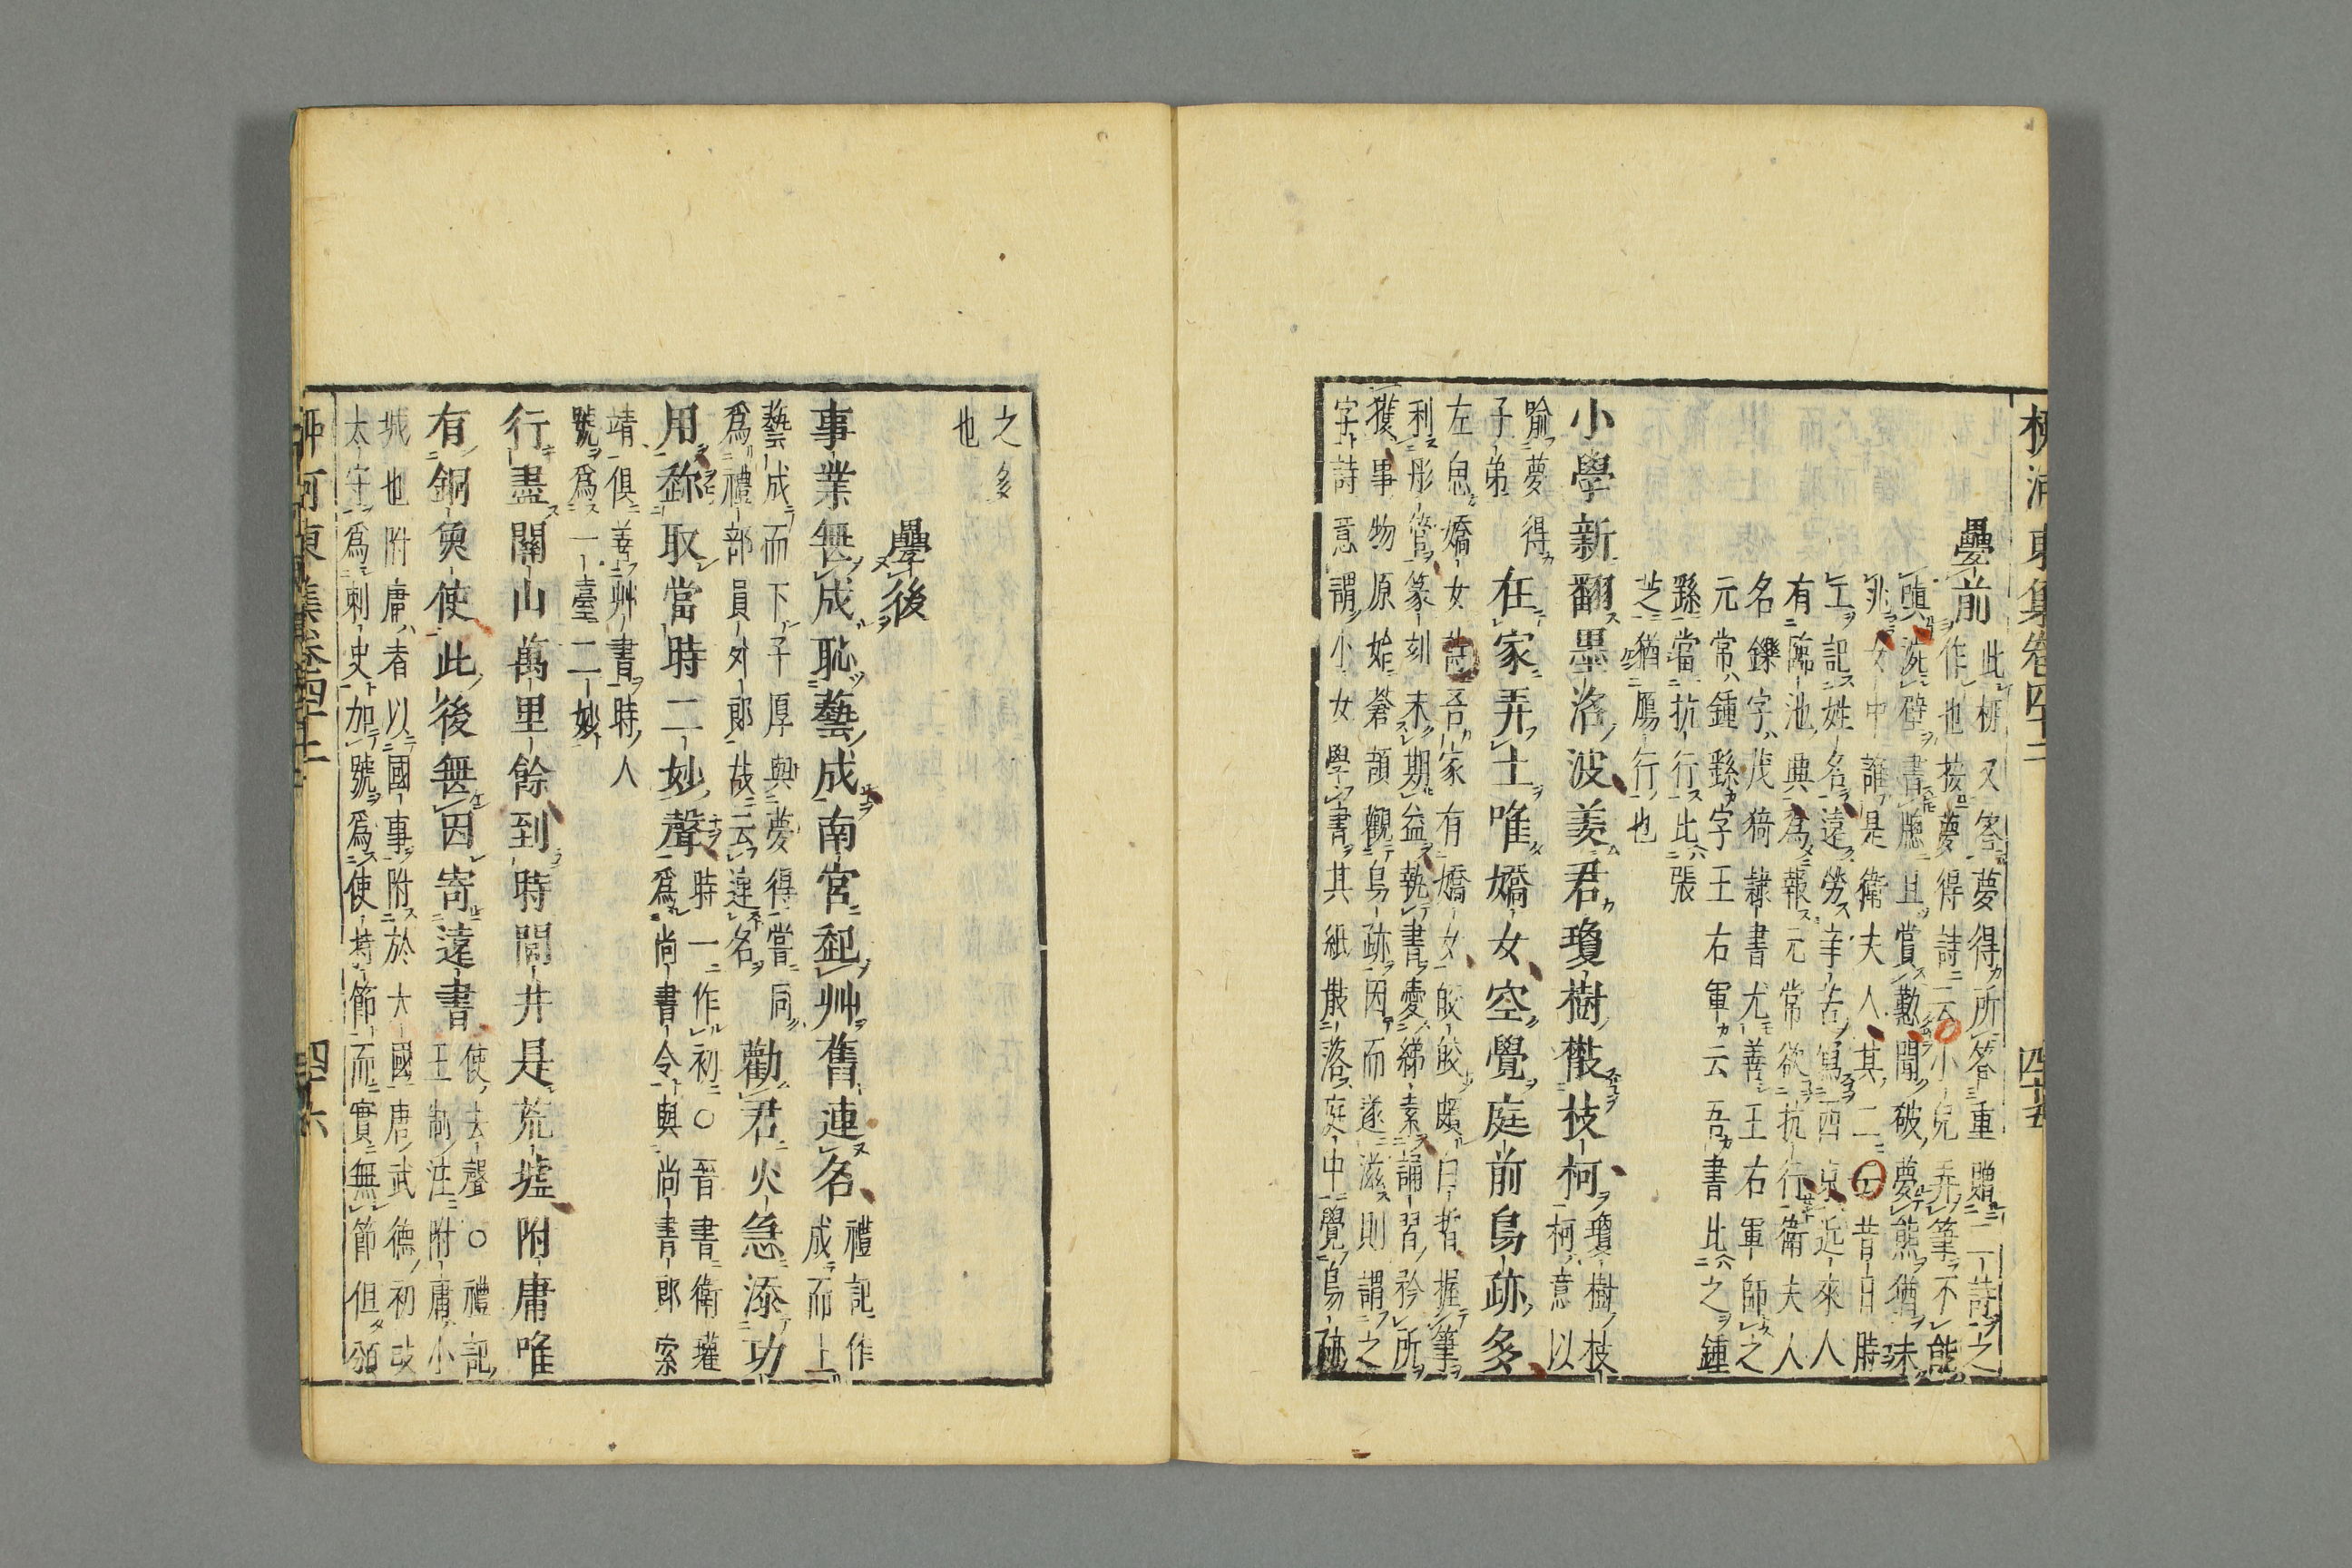 柳河東集卷四十二　四十五
疊前
此柳又答夢得所答重贈二詩之
作也按夢得詩云小兒弄筆不能
嗔涴壁書牕且賞勤聞破夢熊猶未
兆女中誰是衛夫人其二云昔日
工記姓名遠勞辛苦寫西京近來人
有臨池興爲報元常欲抗行衛夫人
名鑠字茂猗隸書尤善王右軍師之
元常鍾繇字王右軍云吾書比之鍾
繇當抗行比張
芝猶鴈行也
小學新翻墨沼波羡君瓊樹散枝柯
瓊樹枝
柯意以
喻夢得
子弟
在家弄土唯嬌女空覺庭前鳥跡多
左思嬌女詩吾家有嬌女皎皎頗白皙握筆
利彤管篆刻未期益執書愛綈素誦習矜所
獲事物原始蒼頡觀鳥跡因而遂滋則謂之
字詩意謂小女學書其紙散落庭中覺鳥跡
之多
也
疊後
事業無成恥藝成南宮起艸舊連名
禮記作
成而上
藝成而下子厚與夢得嘗同
爲禮部員外郎故云連名
勸君火急添功
用趂取當時二妙聲
時一作初○晉書衛瓘
爲尚書令與尚書郎索
靖俱善艸書時人
號爲一臺二妙
行盡關山萬里餘到時閭井是荒墟附庸唯
有銅魚使此後無因寄遠書
使去聲○禮記
王制注附庸小
城也附庸者以國事附於大國唐武德初改
太守爲刺史加號爲使持節而實無節但頒
柳河東集卷四十二　四十六